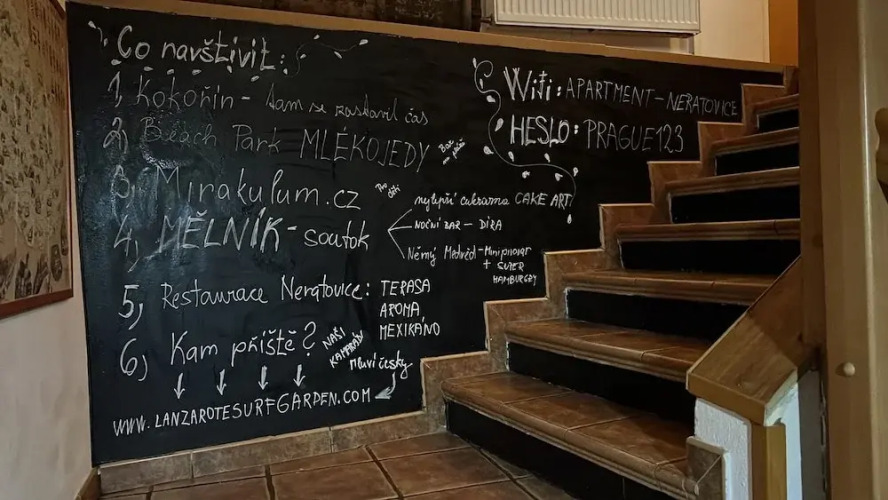 Co navštívit:
1, Kokořín - tam se zastavil čas
2, Beach Park MLÉKOJEDY
3, Mirakulum.cz Pro děti
4, MĚLNÍK - soutok
nejlepší cukrárna CAKE ART
NOČNÍ BAR - DÍRA
Němý Medvěd - Minipivovar
+ SUPER
HAMBURGRY
5, Restaurace Neratovice: TERASA
AROMA,
MEXIKÁNO
6, Kam příště?
NAŠI
KAMARÁDI
Mluví česky
WWW.LANZAROTESURFGARDEN.COM
Wifi: APARTMENT-NERATOVICE
HESLO: PRAGUE123